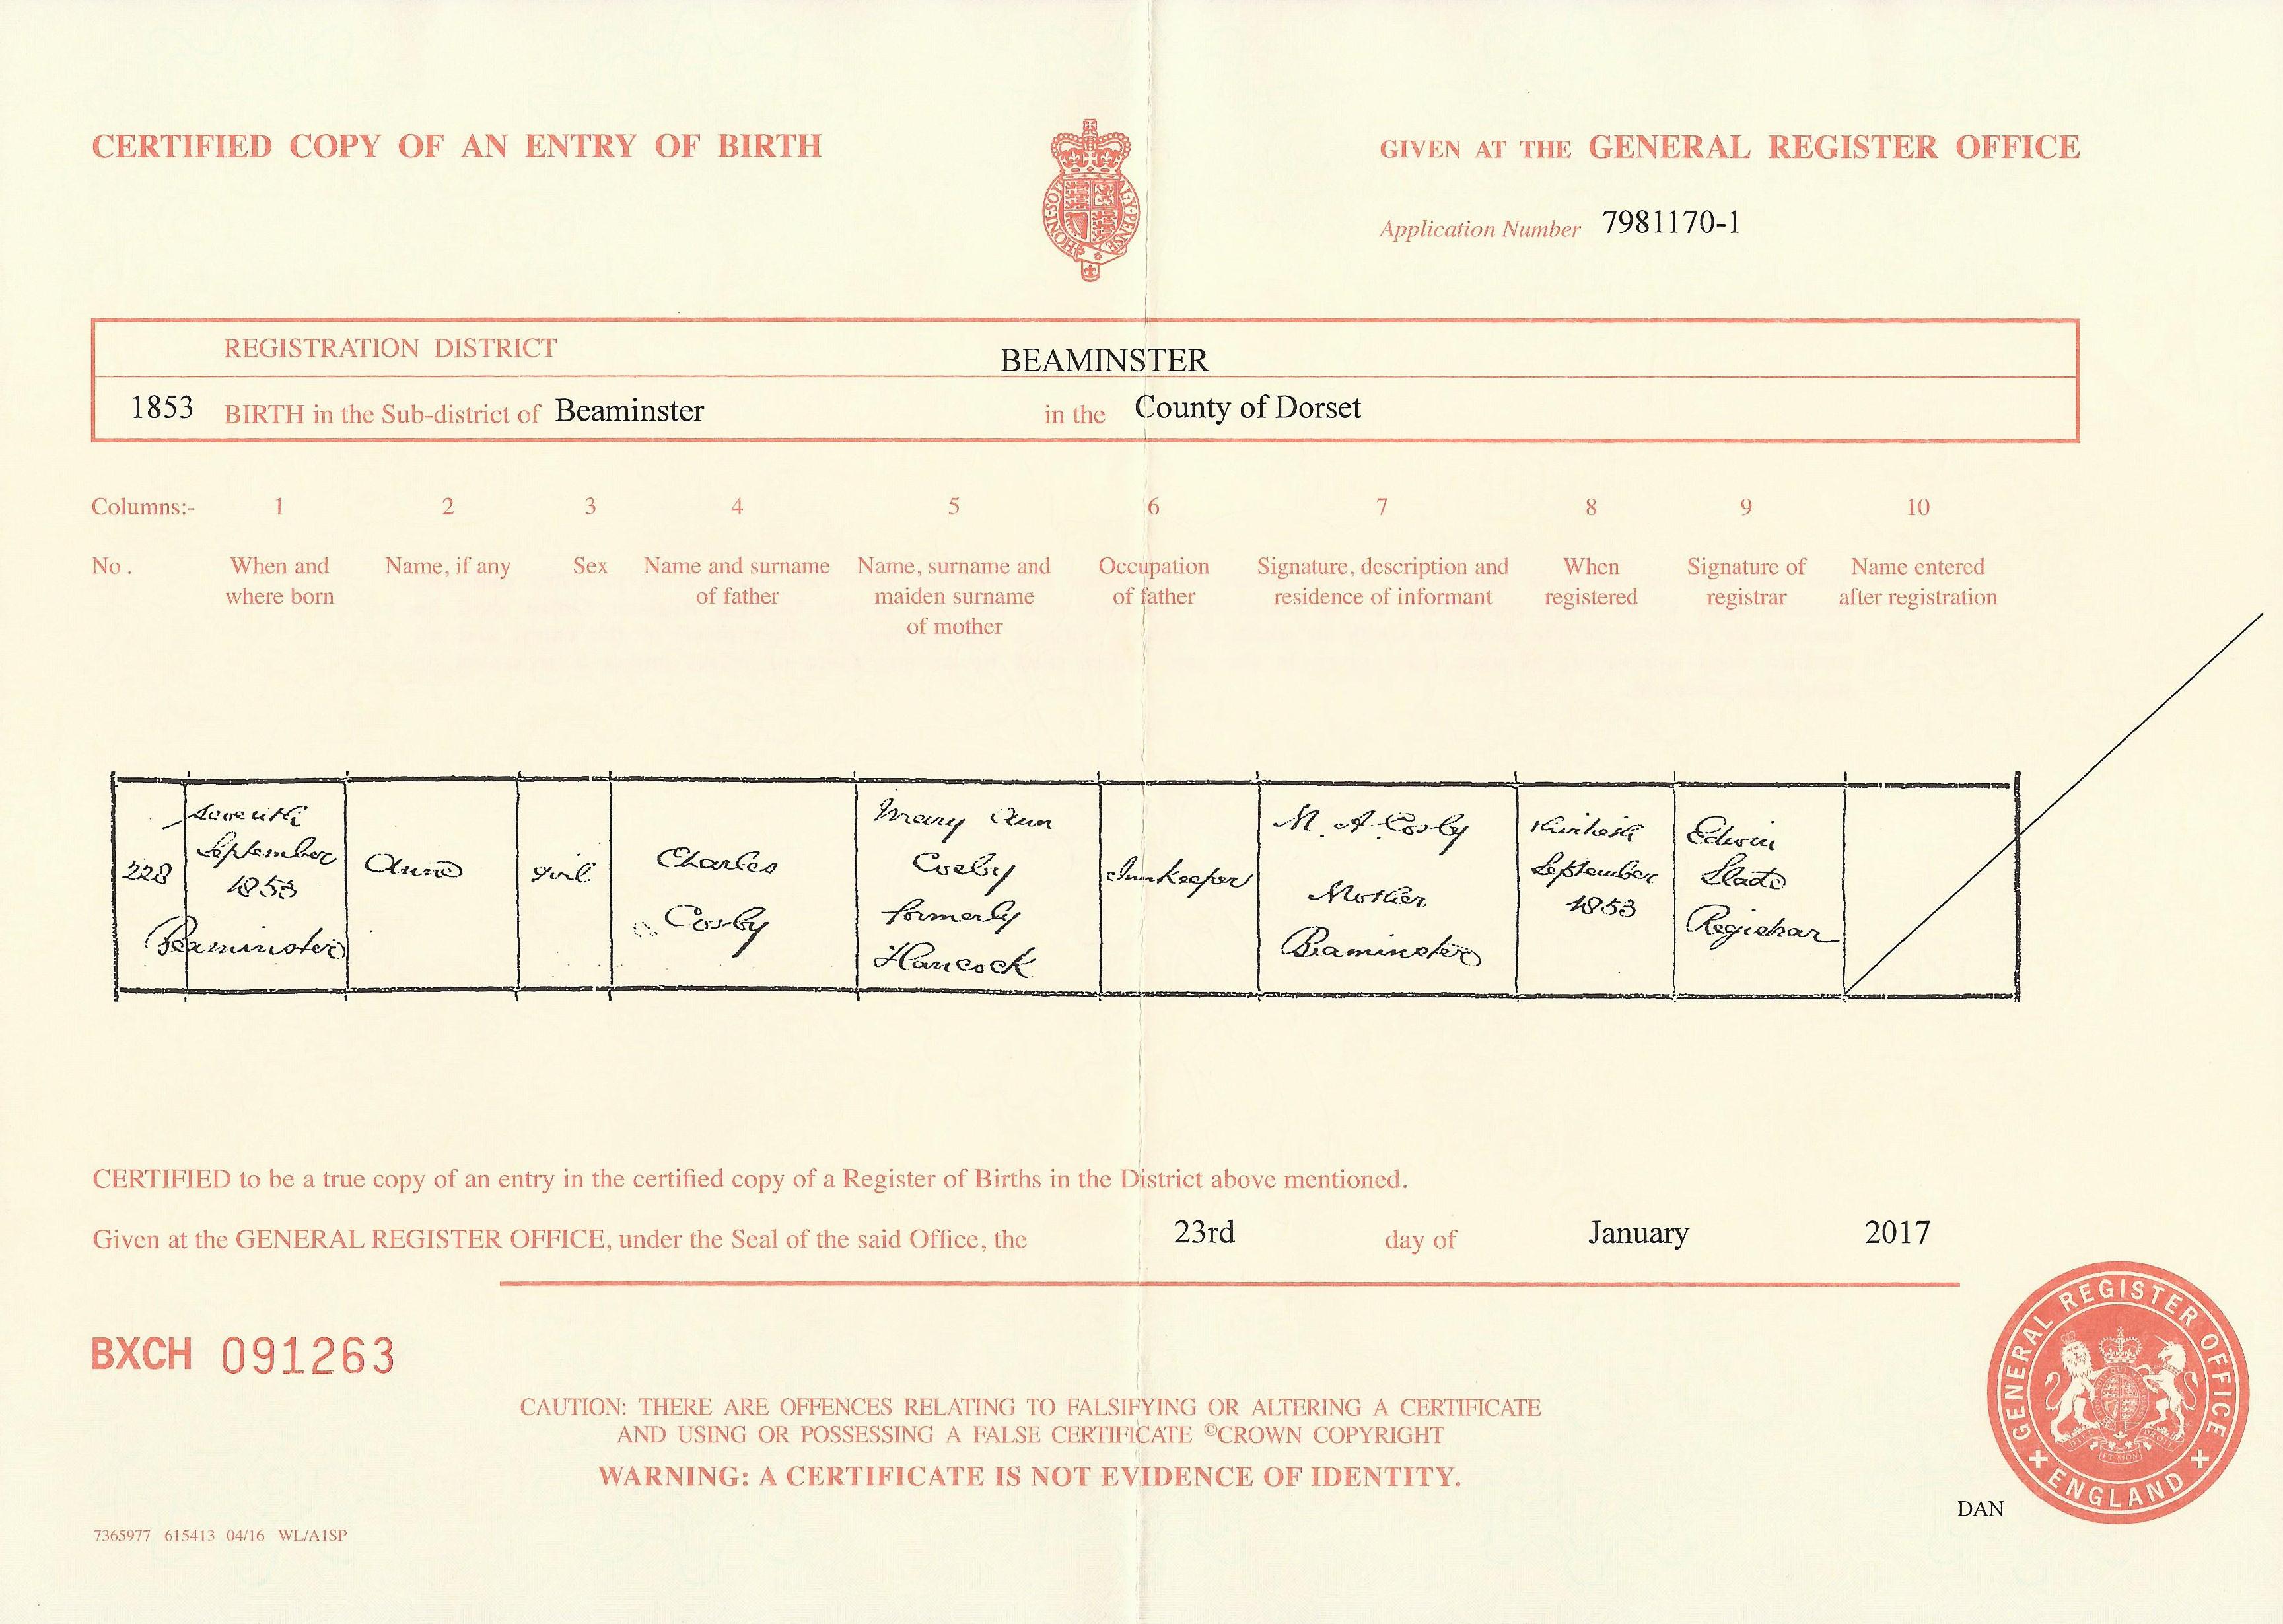 CERTIFIED COPY OF AN ENTRY OF BIRTH
GIVEN AT THE GENERAL REGISTER OFFICE
HONI SOI
Y PENSE
Application Number 7981170-1
REGISTRATION DISTRICT BEAMINSTER
1853 BIRTH in the Sub-district of Beaminster in the County of Dorset
Columns:- 1 2 3 4 5 6 7 8 9 10
No. When and where born
Name, if any
Sex
Name and surname of father
Name, surname and maiden surname of mother
Occupation of father
Signature, description and residence of informant
When registered
Signature of registrar
Name entered after registration
228
Seventh
September
1853
Beaminster
Anne
Girl
Charles
Cosby
Mary Ann
Cosby
formerly
Hancock
Innkeeper
M. A. Cosby
Mother
Beaminster
September
1853
Edwin
Slade
Registrar
CERTIFIED to be a true copy of an entry in the certified copy of a Register of Births in the District above mentioned.
Given at the GENERAL REGISTER OFFICE, under the Seal of the said Office, the 23rd day of January 2017
BXCH 091263
CAUTION: THERE ARE OFFENCES RELATING TO FALSIFYING OR ALTERING A CERTIFICATE
AND USING OR POSSESSING A FALSE CERTIFICATE ©CROWN COPYRIGHT
WARNING: A CERTIFICATE IS NOT EVIDENCE OF IDENTITY.
GENERAL REGISTER OFFICE
ENGLAND
DAN
7365977 615413 04/16 WL/A1SP